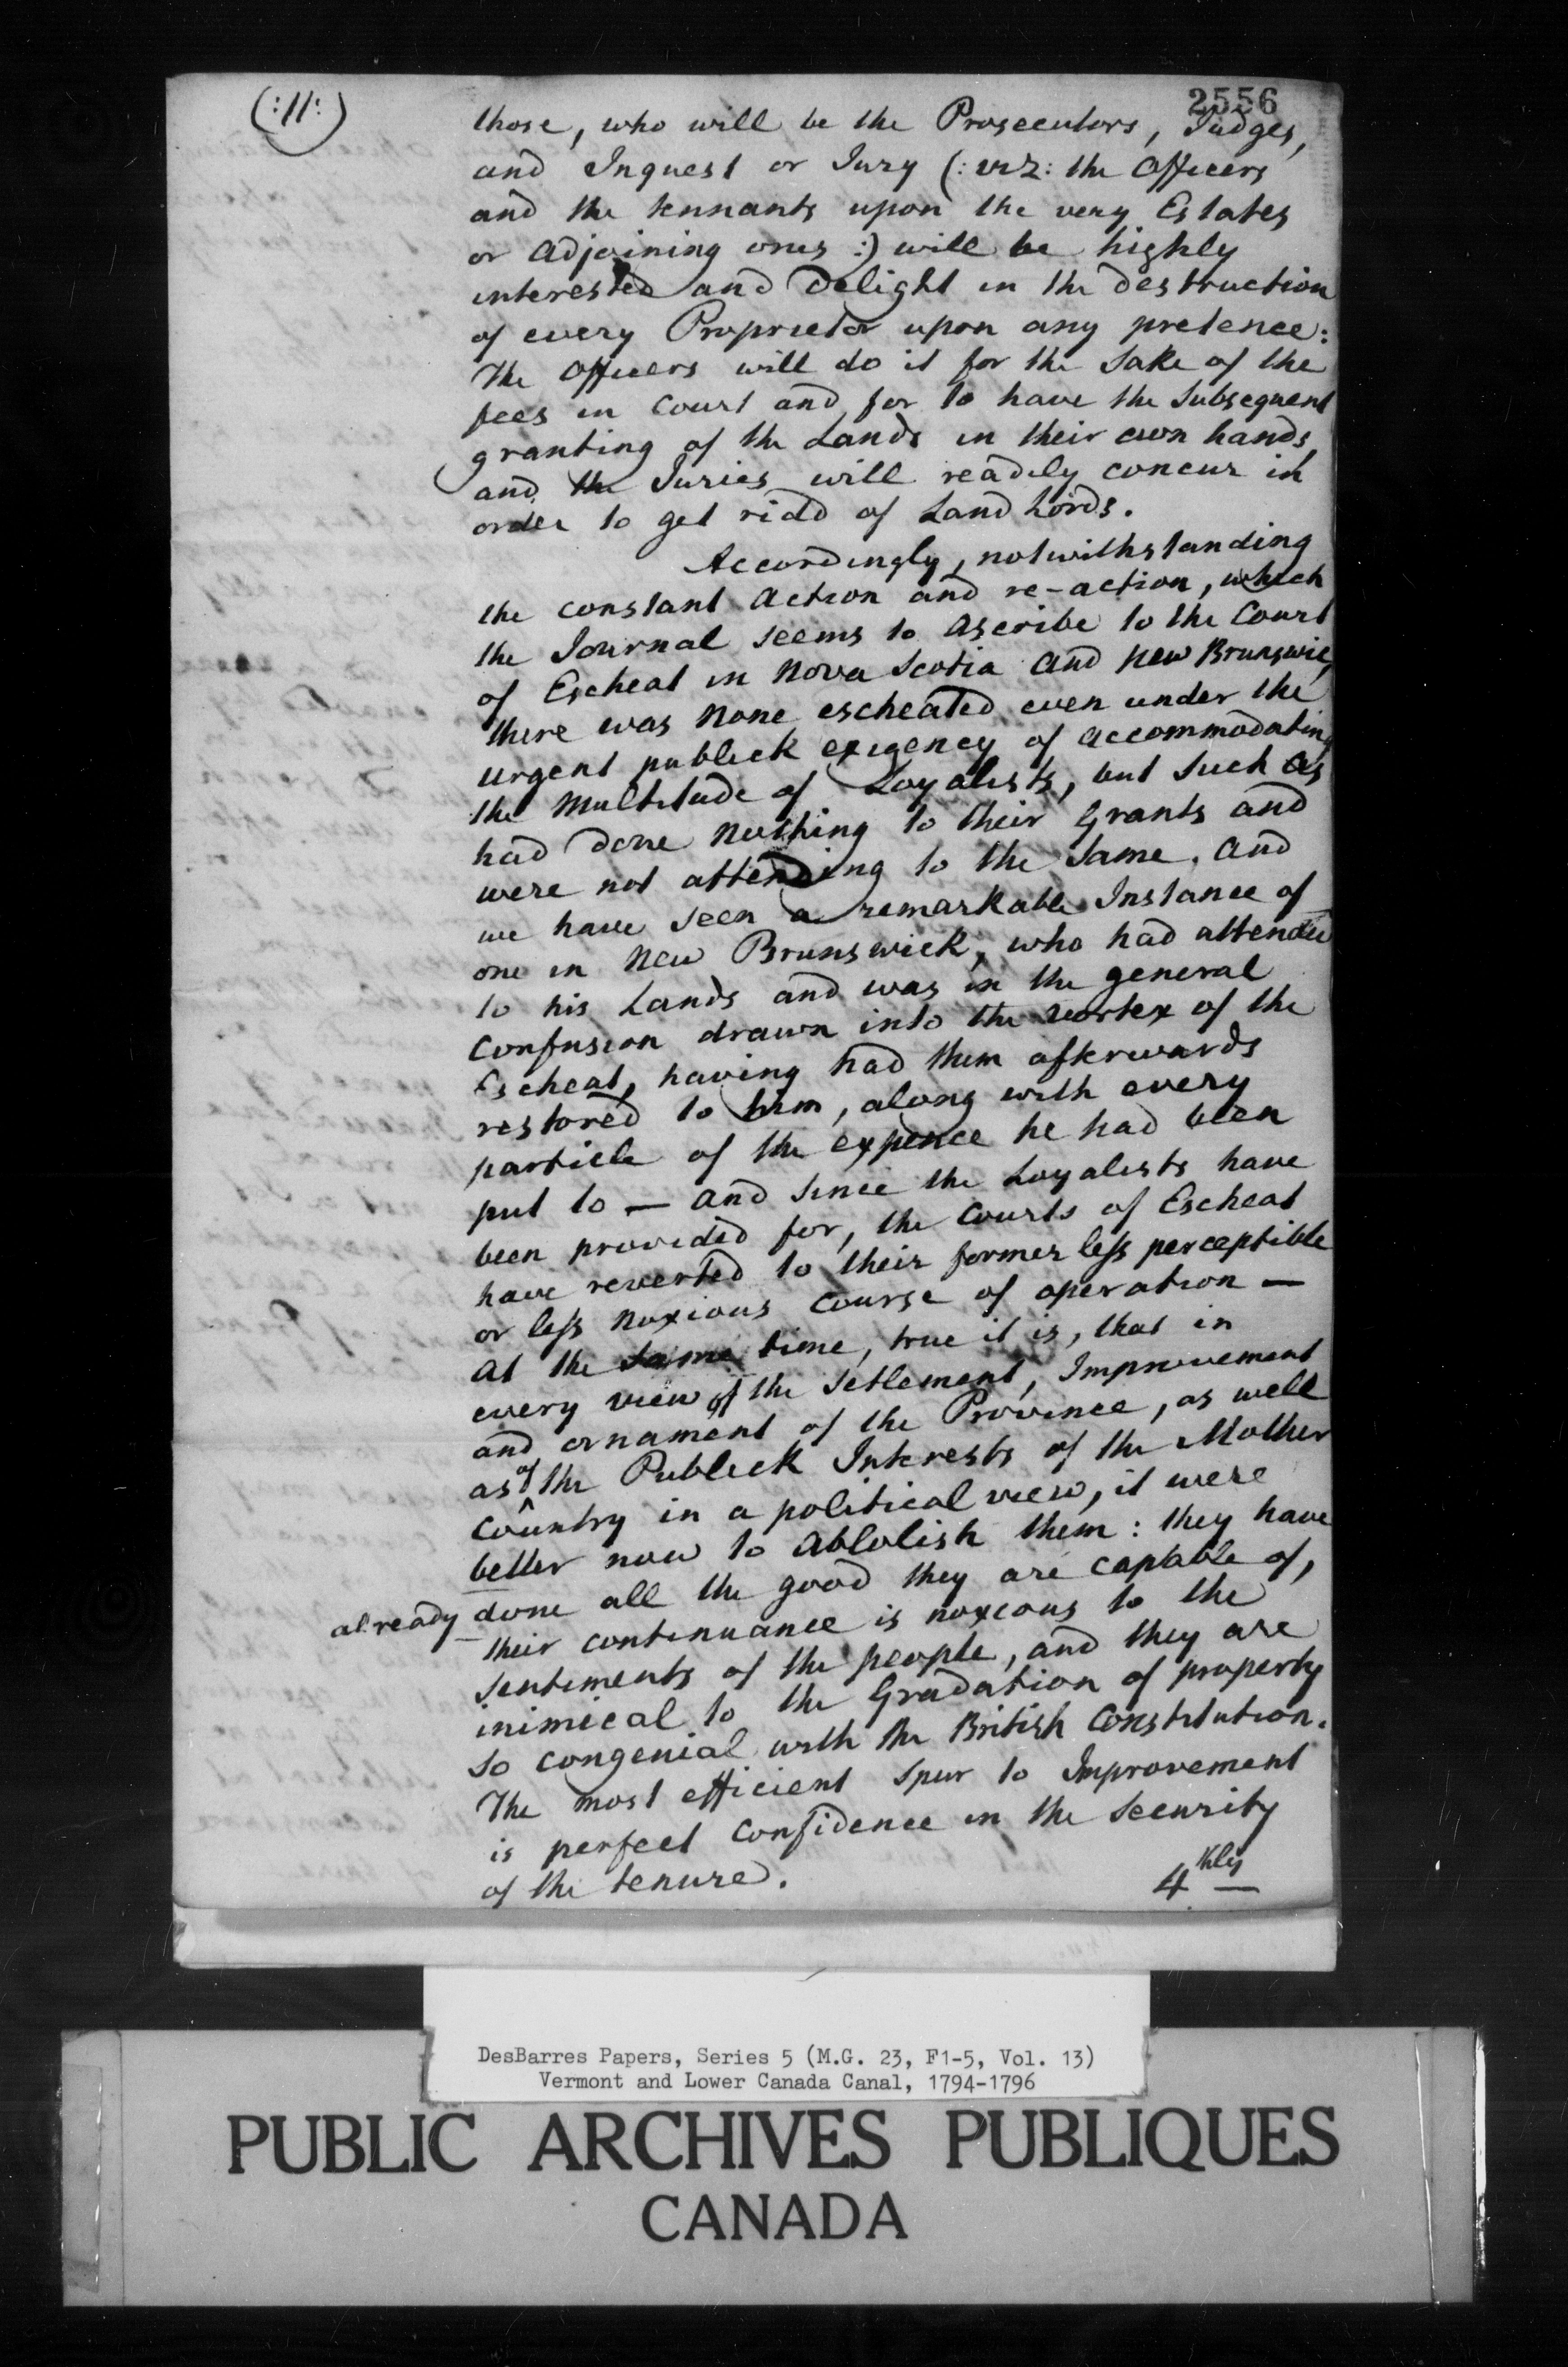 (:11:)
2556
those, who will be the Prosecutors, Judges,
and Inquest or Jury (: viz: the Officers
and the tennants upon the very Estates
or adjoining ones :) will be highly
interested and Delight in the destruction
of every Proprietor upon any pretence:
The Officers will do it for the sake of the
fees in Court and for to have the subsequent
granting of the Lands in their own hands,
and the Juries will readily concur in
order to get ridd of Land Lords.
Accordingly, notwithstanding
the constant action and re-action, which
the Journal seems to ascribe to the Court
of Escheat in Nova Scotia and New Brunswic,
there was none escheated even under the
urgent publick exigency of accommodating
the Multitude of Loyalists, but such as
had done nothing to their Grants and
were not attending to the same. and
we have seen a remarkable Instance of
one in New Brunswick, who had attended
to his Lands and was in the general
confusion drawn into the vortex of the
Escheat, having had them afterwards
restored to him, along with every
particle of the expence he had been
put to — and since the Loyalists have
been provided for, the Courts of Escheat
have reverted to their former less perceptible
or less noxious course of operation —
at the same time, true it is, that in
every view of the Setlement, Improvement
and ornament of the Province, as well
as of the Publick Interests of the Mother
Country in a political view, it were
better now to ablolish them: they have
already done all the good they are capable of,
their continuance is noxious to the
sentiments of the people, and they are
inimical to the Gradation of property
so congenial with the British Constitution.
The most efficient spur to Improvement
is perfect confidence in the security
of the tenure.
4thly
DesBarres Papers, Series 5 (M.G. 23, F1-5, Vol. 13)
Vermont and Lower Canada Canal, 1794-1796
PUBLIC ARCHIVES PUBLIQUES
CANADA